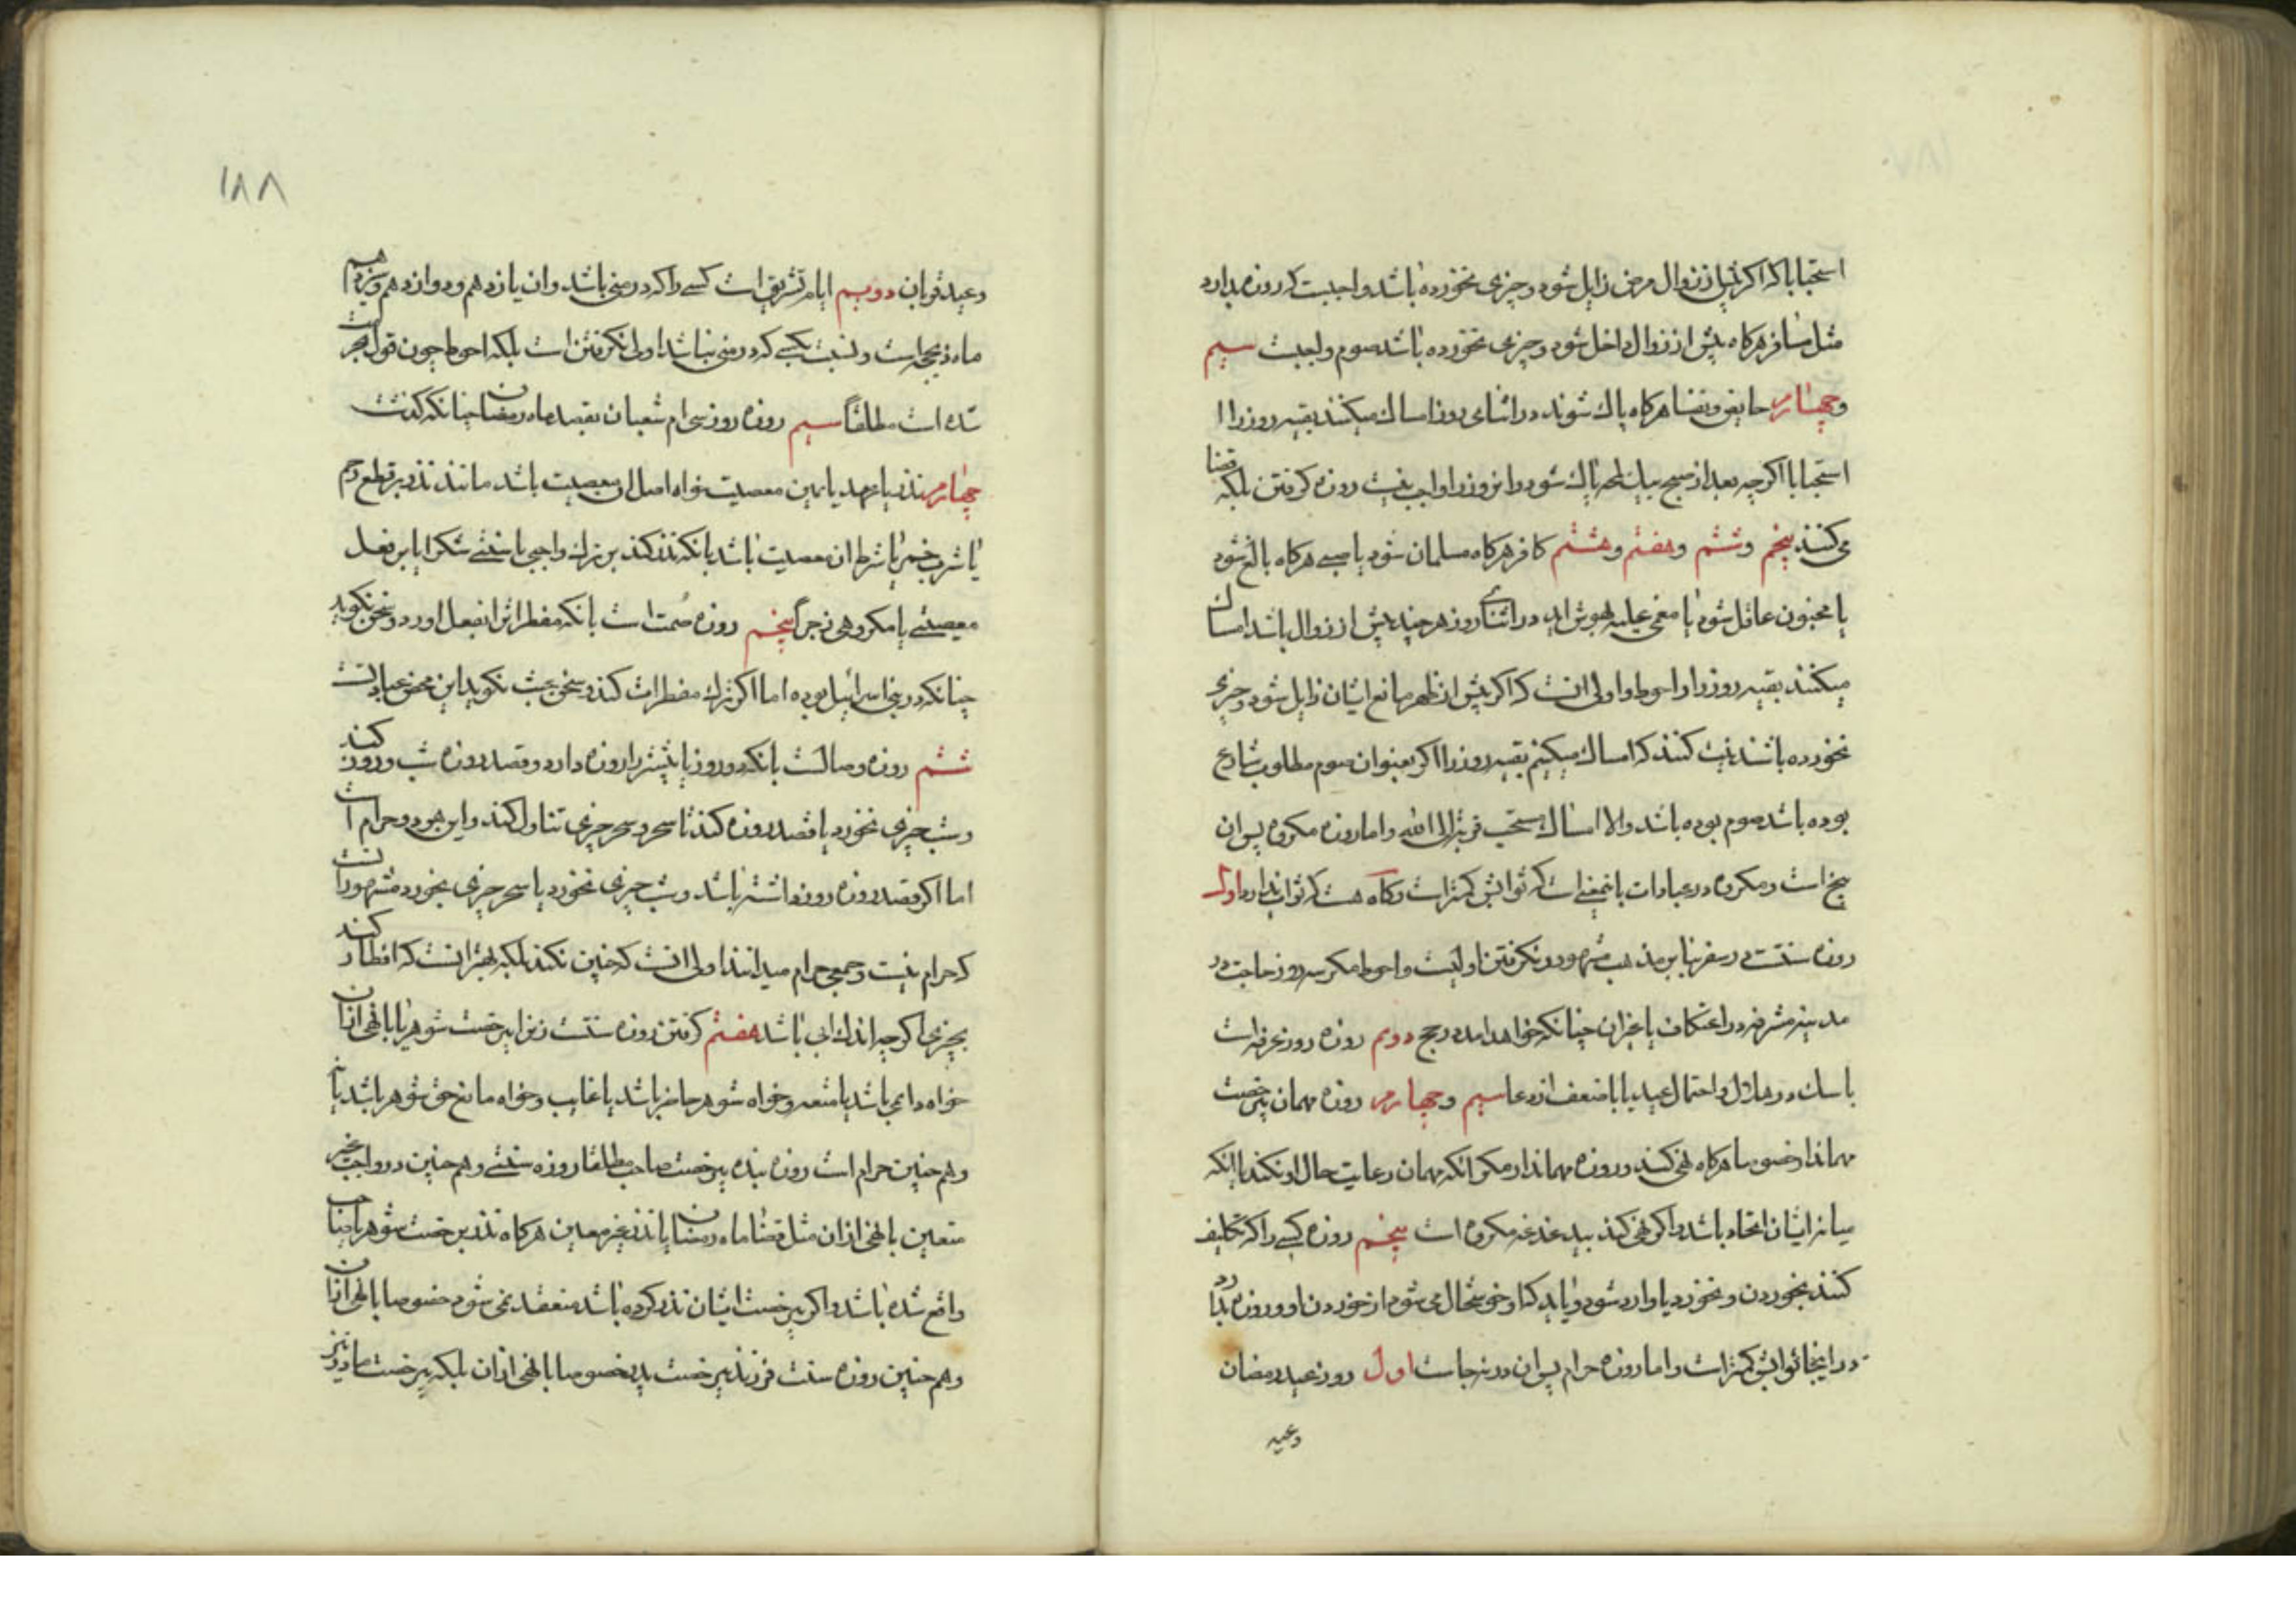 استحبابا که اکر پیش از زوال مرض زایل شود و چیزی نخورده باشد واجبست که روزه بدارد
مثل مسافر هرکاه پیش از زوال داخل شود و چیزی نخورده باشد صوم واجبست سیم
و چهارم حایض و نفسا هرکاه پاك شوند در اثنای روز امساك میکنند بقیه روز را
استحبابا اکر چه بعد از صبح بیك لحظه پاك شود و این روز را واجب نیست روزه کرفتن بلکه قضا
می کنند پنجم و ششم و هفتم و هشتم کافر هرکاه مسلمان شود یا صبی هرکاه بالغ شود
یا مجنون عاقل شود یا مغمی علیه بهوش اید در اثنای روز هر چند پیش از زوال باشد امساك
میکنند بقیه روز را و احوط و اولی انست که اکر پیش از ظهر مانع ایشان زایل شود و چیزی
نخورده باشند نیت کنند که امساك میکنیم بقیه روز را اکر بعنوان صوم مطلوب شارع
بوده باشد صوم بوده باشد والا امساك مستحب قربة الی الله و اما روزه مکروه پس ان
پنج است و مکروه در عبادات باینمعنی است که ثوابش کمتر است و کاه هست که ثواب ندارد اول
روزه سنت در سفر بنابر مذهب مشهور و نکرفتن اولیست و احوط مکر سه روز حاجت در
مدینه مشرفه در اعتکاف یا غیر ان چنانکه خواهد امد در حج دویم روزه روز عرفه است
با شك در هلال و احتمال عید یا با ضعف از دعا سیم و چهارم روزه مهمان بیرخصت
مهماندار خصوصا هرکاه نهی کند و روزه مهماندار مکر انکه مهمان رعایت حال او نکند با انکه
میانه ایشان اتحاد باشد و اکر نهی کند بیدغدغه مکروه است پنجم روزه کسی را که تکلیف
کنند بخوردن و نخورد یا وارد شود و خوشحال می شود از خوردن او و روزه بدارد
در اینجا ثوابش کمتر است و اما روزه حرام پس ان در نه جاست اول روز عید رمضان
وعید
۱۸۸
و عید قربان دویم ایام تشریق است کسی را که در منی باشد و ان یازدهم و دوازدهم و سیزدهم
ماه ذیحجه است و نسبت بکسی که در منی نباشد اولی نکرفتن است بلکه احوط چون قول بحرمت
شده است مطلقا سیم روزه روز سی ام شعبان بقصد ماه رمضان چنانکه کذشت
چهارم نذر یا عهد یا یمین معصیت خواه اصل ان معصیت باشد مانند نذر بر قطع رحم
یا شرب خمر یا شرط ان معصیت باشد بانکه نذر کند بر ترك واجبی یا سنتی شکرا یا بر فعل
معصیتی یا مکروهی زجرا پنجم روزه صمت است بانکه مفطرات را بفعل اورد و سخن نکوید
چنانکه در بنی اسرائیل بوده اما اکر ترك مفطرات کند و سخن عبث نکوید این محض عبادتست
ششم روزه وصالست بانکه دو روز یا بیشتر را روزه دارد و قصد روزه شب و روز کند
و شب چیزی نخورد یا قصد روزه کند تا سحر و سحر چیزی تناول کند و این هر دو حرام است
اما اکر قصد روزه روز داشته باشد و شب چیزی نخورد یا سحر چیزی بخورد مشهور انست
که حرام نیست و جمعی حرام میدانند اولی انست که چنین نکند بلکه بهتر انست که افطار کند
بچیزی اکر چه اندك ابی باشد هفتم کرفتن روزه سنت زن را بیرخصت شوهر یا با نهی از ان
خواه دایمی باشد یا متعه و خواه شوهر حاضر باشد یا غایب و خواه مانع حق شوهر باشد یا نه
و هم چنین حرام است روزه بنده بیرخصت صاحب مطلقا روزه سنتی و هم چنین در واجب غیر
متعین با نهی از ان مثل قضا ماه رمضان یا نذر غیر معین هرکاه نذر برخصت شوهر یا صاحب
واقع شده باشد و اکر بیرخصت ایشان نذر کرده باشد منعقد نمی شود خصوصا با نهی از ان
و هم چنین روزه سنت فرزند بیرخصت پدر خصوصا با نهی از ان بلکه بیرخصت مادر نیز